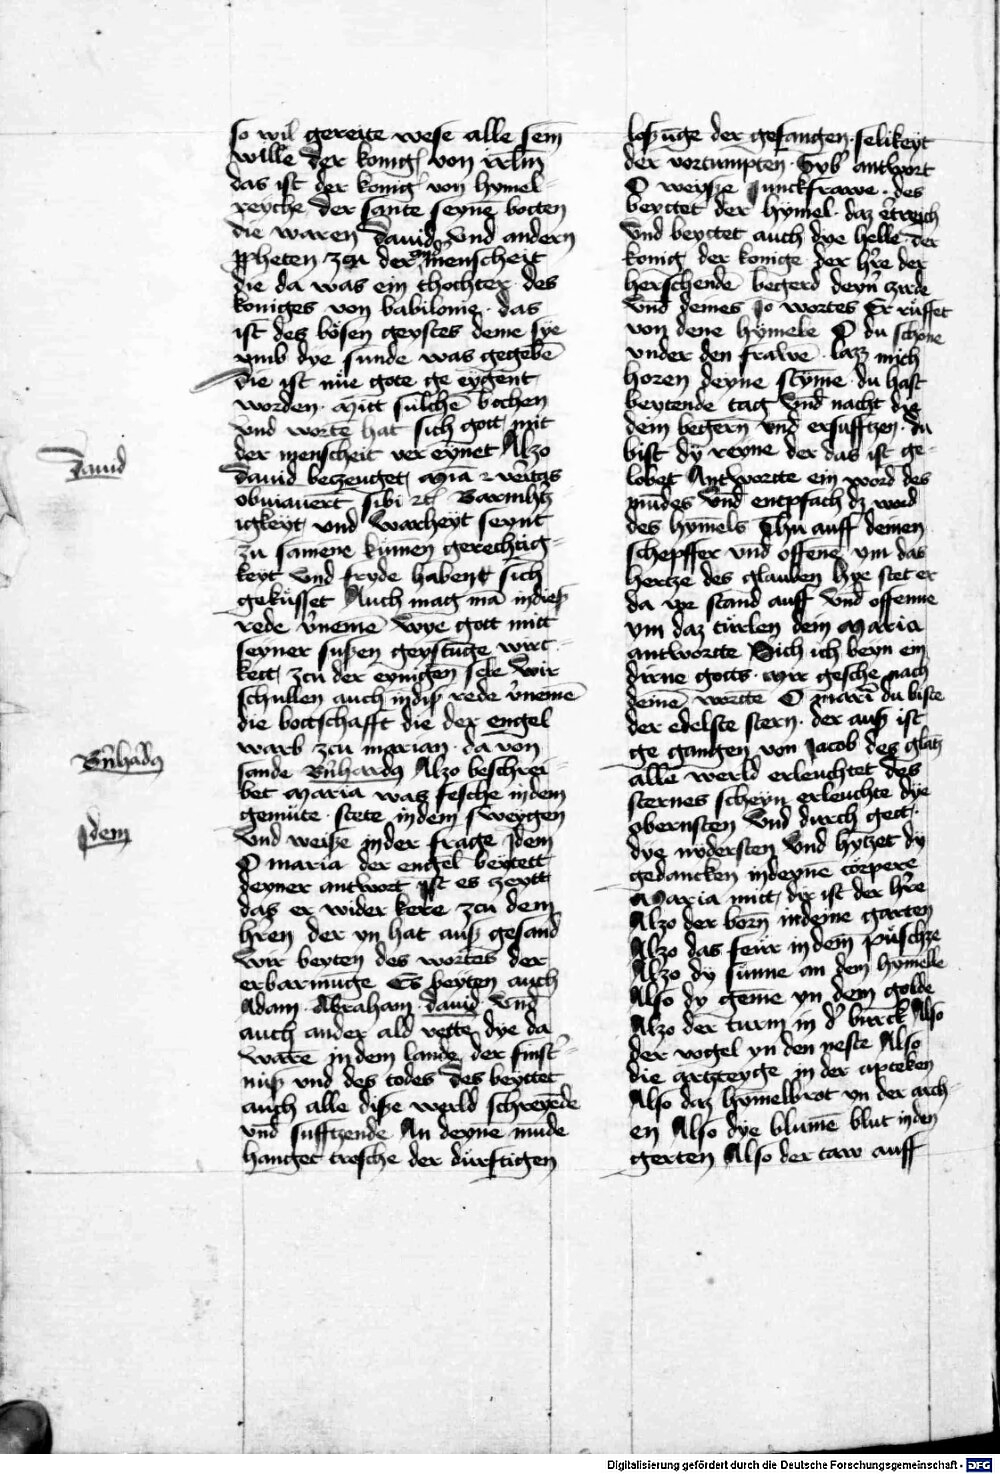 so wil gereite wese alle sein̄
wille der konig von irl̄m
das ist der konig von hymel-
reyche der sante seynē botten
die waren dauid vnd andern
ꝓpheten zcu der menscheit
die da was ein thochter des
koniges von babilonie · das
ist des bösen geystes deme sye
vmb dye sunde was gegebē
die ist nüe gote ge eygent
worden · Mitt sülchē bochen
vnd worte hat sich gott mit
der menscheit ver eynet Alzo
dauid beczeuget Mīa ⁊ v̄itas
obuiauert sibi ⁊c̄ Barmh̄tz
igkeyt vnd warheyt seynt
zu samene kumen gerechtig-
keyt vnd fryde habent sich
geküsset Auch mag mā indieß
rede v̄nemē wye gott mitt
seyner sußen geystūge wirc-
kett zcu der eynigen sele Wir
schullen auch indiß rede v̄nemē
die bottschafft die der engel
warb zcu marian · da von
sande Bn̄hardꝯ Alzo beschrei-
bet Maria was fesche indem
gemüte · stete indem sweygen
vnd weiße inder frage Jdem
O maria der engel beytett
deyner antwort ist es zeytt
das er wider kere zcu dem
h̄ren der yn hat auß gesand
wir beyten des wortes der
erbarmūge Es beyten auch
Adam · Abraham · dauid · vnd
auch ander ald vette dye da
warē in dem lande der finst̄-
nüß vnd des todes Des beyttet
auch alle diße werld schreyēde
vnd sufftzende An deyne mūde
hanget trosche der dürftigen
Dauid
Bn̄hadꝯ
Jdem
loßūge der gefangen · selikeyt
der vortumpten · Gyb antwort
O weysze Junckfrawe · des
beyttet der hymel · daz ertreich
vnd beyttet auch dye helle der
konig der konige der h̄re der
herschendē begerd deyn̄ zirde
vnd deines Jo wortes Er rüffet
von dene hymele O du schöne
vnder den frawē · lazz mich
horen deyne stymē · du hast
beytende tag vnd nacht die
dein begern vnd ersufftzen · du
bist dy reyne der das ist ge-
lobet Antwortte ein word des
mūdes vnd entpfach dz word
des hymels Thu auff deinen
schepffer vnd offene ym das
hertze des glauben Hye stet er
da vor stand auff vnd offenne
ym daz türlen dein Maria
antwortte Sich ich beyn ein
dirne gotts · Mir gesche nach
deinē wortte O maria du biste
der edelste stern · der auß ist
ge gangen von Jacob des glantz
alle werld erleuchtet des
sternes scheyn erleuchte dye
obernsten vnd durch gett ·
dye nydersten vnd hytzet dy
gedancken indeynē cörpere
Maria mitt dir ist der h̄re
Alzo der born indeme garten
Alzo das feür indem püschze
Alzo dy sünne an dem hymelle
Also dy geme yn dem golde
Alzo der turm in d̄ burck Also
der vogel yn den neste Also
die artzteyge in der apteken
Also daz hymelbrot yn der arch-
en Also dye blumē blut in den
gerten Also der taw auff
Digitalisierung gefördert durch die Deutsche Forschungsgemeinschaft - DFG